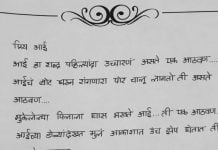 प्रिय आई
आई हा शब्द पहिल्यांदा उच्चारणं असते एक आठवण....
आईचं बोट धरून रांगणारा पोर चालू लागतो ती असते
आठवण....
भुकेलेल्या पिलाना घास भरवते आई... ती एक आठवण...
आईच्या डोळ्यांदेखत मुलं आकाशात उंच झेप घेतात ती